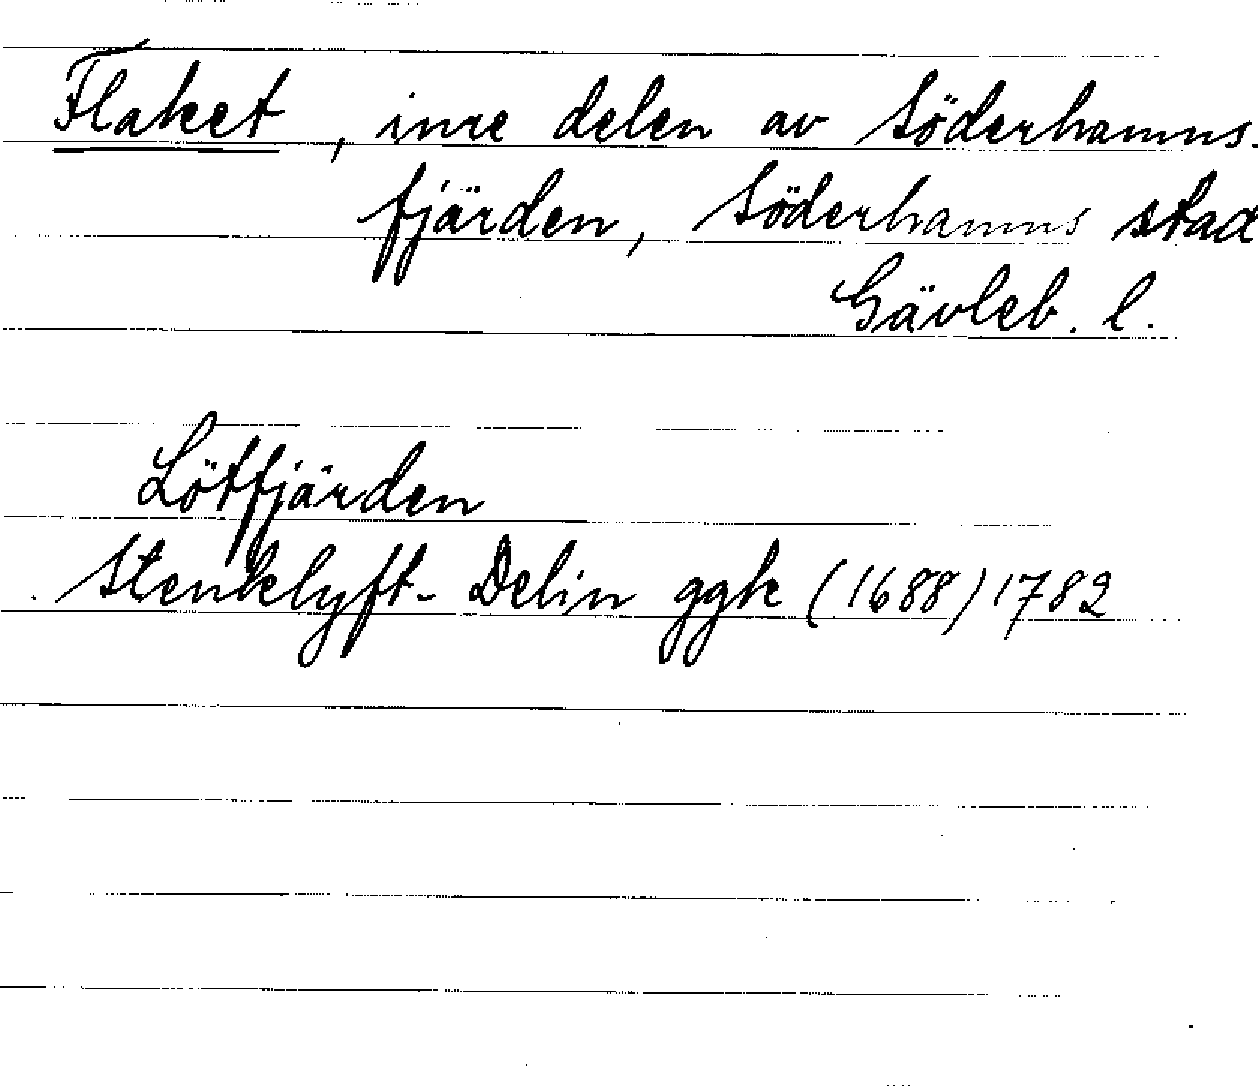 Flaket, inre delen av Söderhamns-
fjärden, Söderhamns stad
Gävleb. l.
Lötfjärden
Stenklyft-Delin ggk (1688) 1782